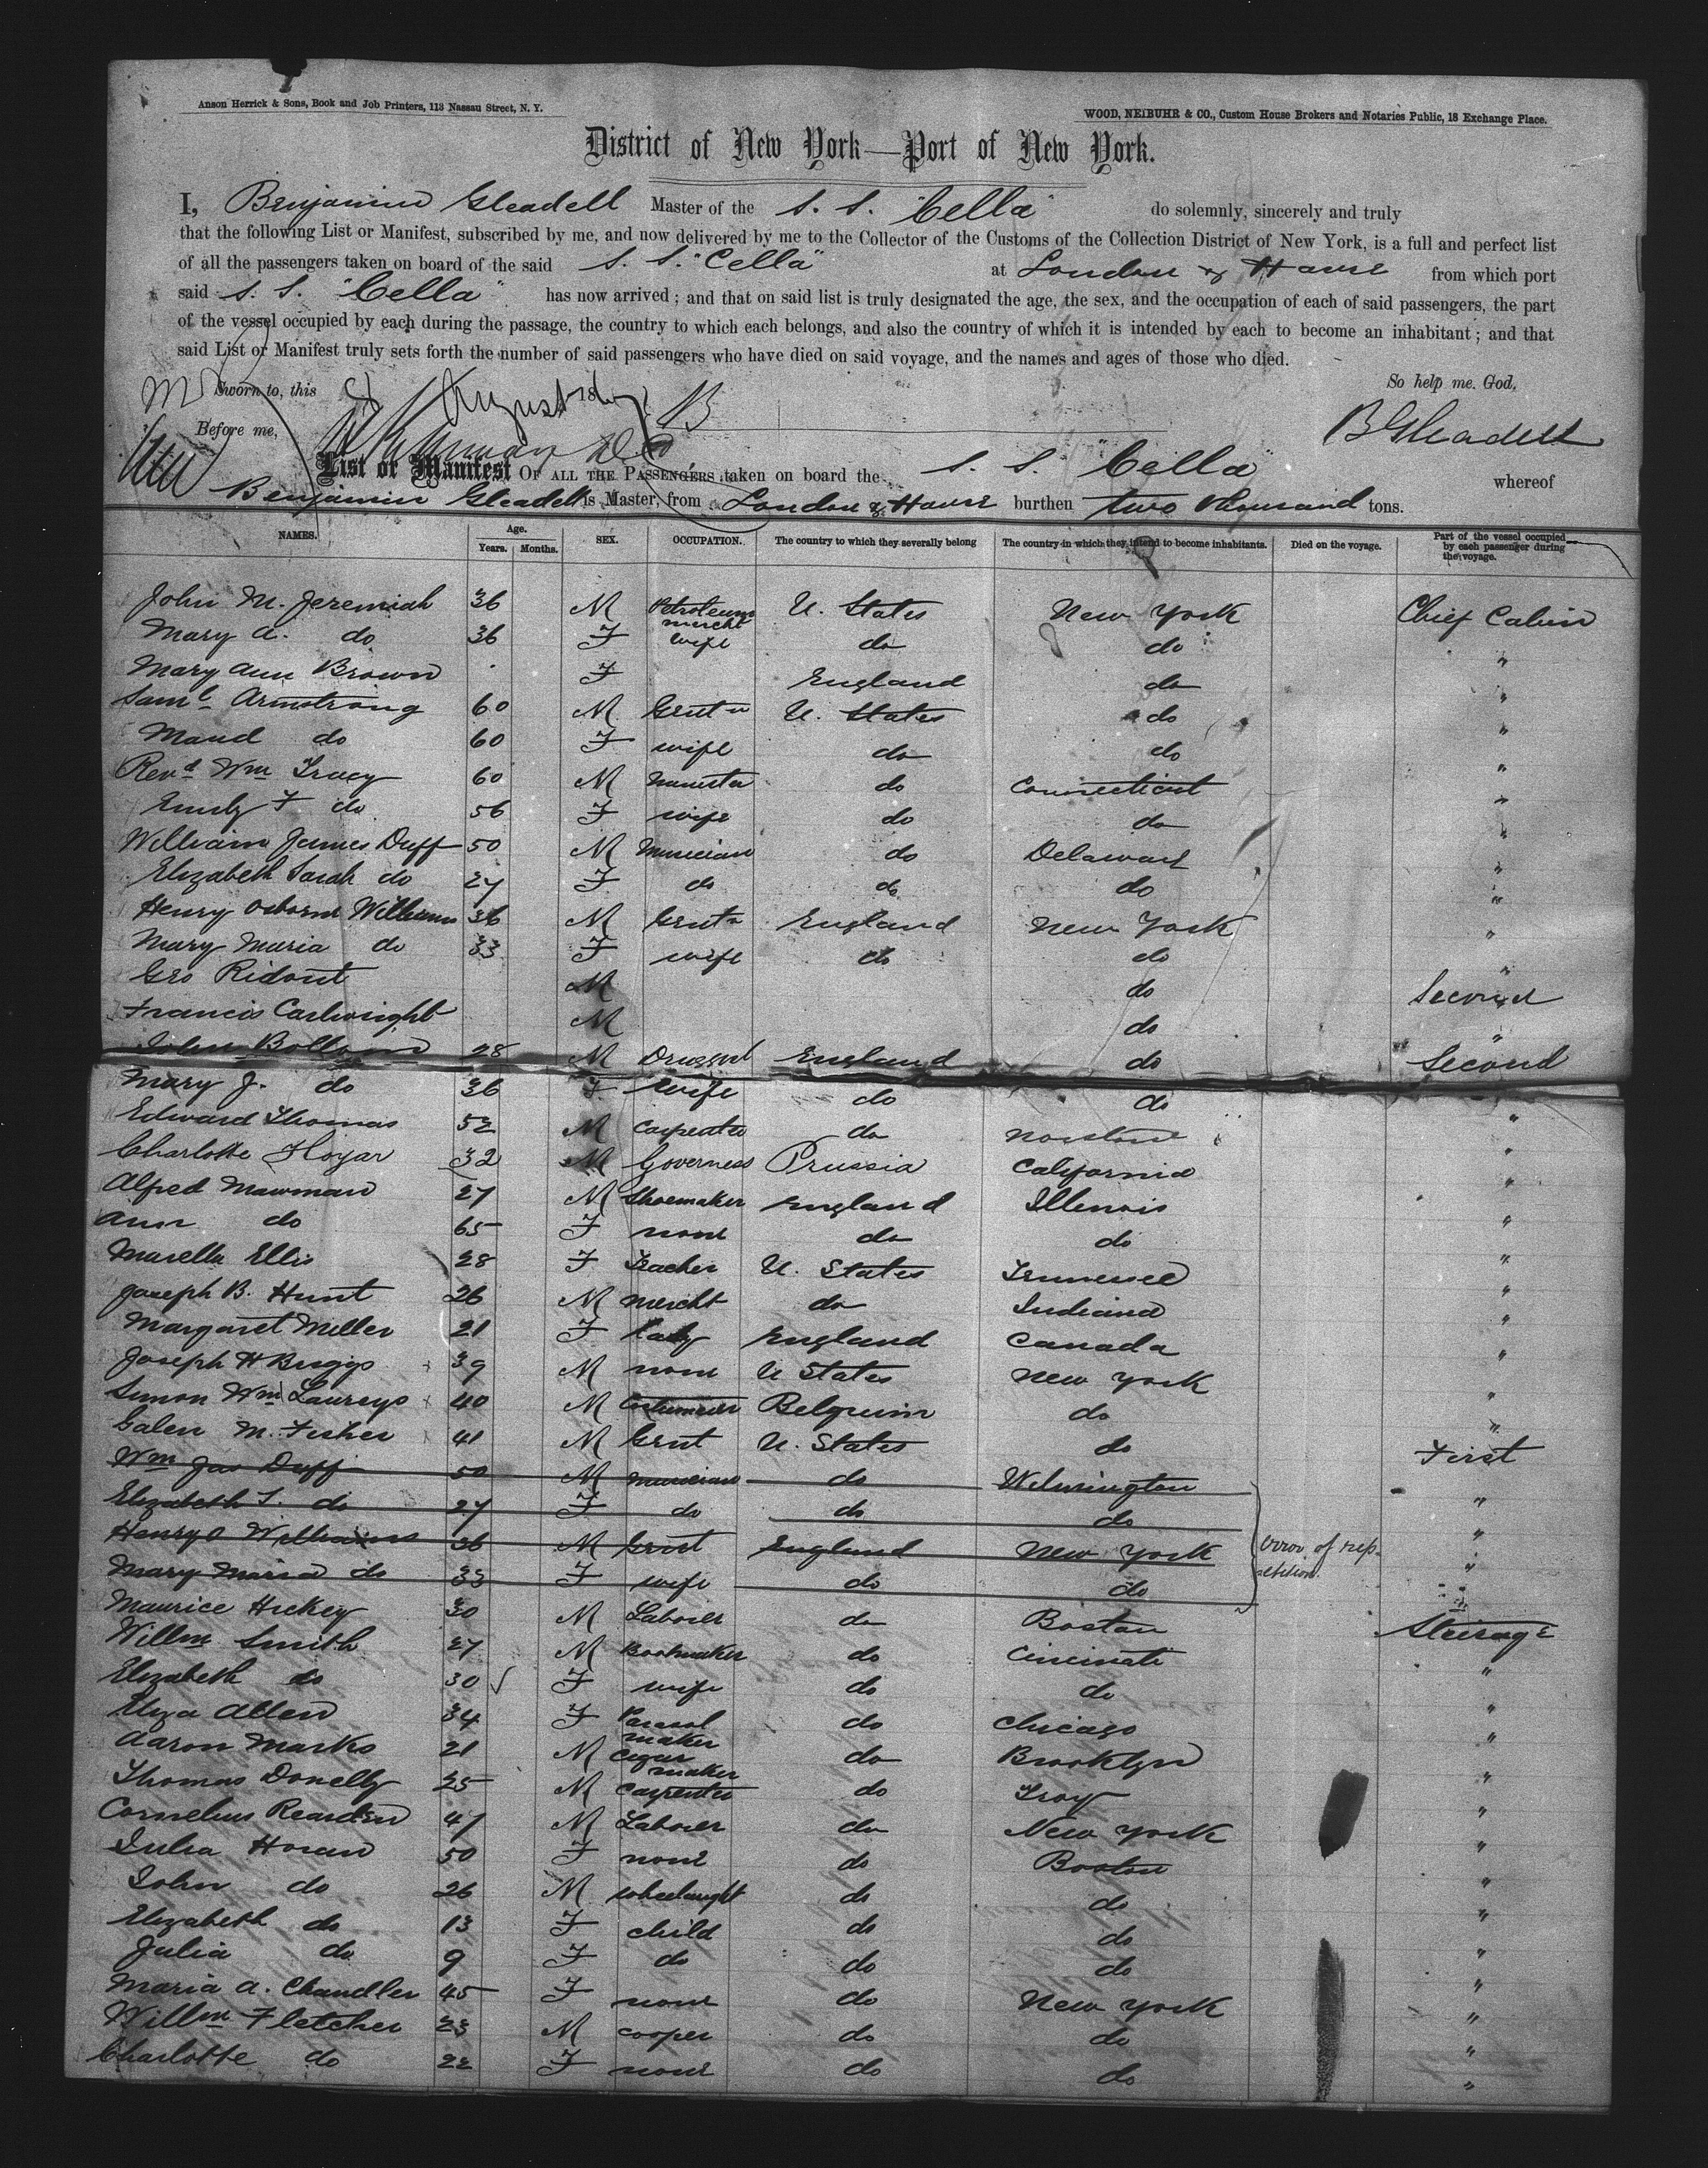 Anson Herrick & Sons, Book and Job Printers, 113 Nassau Street, N. Y.
WOOD, NEIBUHR & CO., Custom House Brokers and Notaries Public, 18 Exchange Place.
District of New York—Port of New York.
I, Benjamin Gleadell Master of the S. S. "Cella" do solemnly, sincerely and truly
that the following List or Manifest, subscribed by me, and now delivered by me to the Collector of the Customs of the Collection District of New York, is a full and perfect list
of all the passengers taken on board of the said S. S. "Cella" at London & Havre from which port
said S. S. "Cella" has now arrived; and that on said list is truly designated the age, the sex, and the occupation of each of said passengers, the part
of the vessel occupied by each during the passage, the country to which each belongs, and also the country of which it is intended by each to become an inhabitant; and that
said List or Manifest truly sets forth the number of said passengers who have died on said voyage, and the names and ages of those who died.
So help me. God.
Sworn to, this August 186
B Gleadell
Before me,
List or Manifest OF ALL THE PASSENGERS taken on board the S. S. "Cella" whereof
Benjamin Gleadell is Master, from London & Havre burthen two thousand tons.
NAMES. Age. Years. Months. SEX. OCCUPATION. The country to which they severally belong The country in which they intend to become inhabitants. Died on the voyage. Part of the vessel occupied by each passenger during the voyage.
John M. Jeremiah 36 M Petroleum mercht U. States New York Chief Cabin
Mary A. do 36 F wife do do "
Mary Ann Brown F England do "
Saml Armstrong 60 M Gentn U. States do "
Maud do 60 F wife do do "
Revd Wm Tracy 60 M Minister do Connecticut "
Emily F do 56 F wife do do "
William James Duff 50 M Musician do Delaware "
Elizabeth Sarah do 27 F do do do "
Henry Osborne Williams 36 M Gentn England New York "
Mary Maria do 33 F wife do do "
Geo Ridout M do Second
Francis Cartwright M do "
John 28 M Druggist England do Second
Mary J. do 36 F wife do do "
Edward Thomas 52 M Carpenter do "
Charlotte Hoyar 32 M Governess Prussia California "
Alfred Mawman 27 M Shoemaker England Illenois "
Ann do 65 F none do do "
Marella Ellis 28 F Teacher U. States Tennessee "
Joseph B. Hunt 26 M Mercht do Indiana "
Margaret Miller 21 F Lady England Canada "
Joseph H Briggs 39 M none U States New York "
Simon Wm Laureys 40 M Costumier Belguim do "
Galen M. Fisher 41 M Gent U. States do First
Wm Jas Duff 50 M Musician do Welmington "
Elizabeth S. do 27 F do do do "
Henry O Williams 36 M Gent England New York "
Mary Maria do 33 F wife do do "
error of rep-
etition.
Maurice Hickey 30 M Laborer do Boston Steirage
Willm Smith 27 M Bootmaker do Cincinati "
Elizabeth do 30 F wife do do "
Eliza Allen 34 F Parasol maker do Chicago "
Aaron Marks 21 M Cigar maker do Brooklyn "
Thomas Donelly 25 M Carpenter do Troy "
Cornelius Rearden 47 M Laborer do New York "
Julia Horan 50 F none do Boston "
John do 26 M wheelwright do do "
Elizabeth do 13 F child do do "
Julia do 9 F do do do "
Maria A. Chandler 45 F none do New York "
Willm Fletcher 23 M cooper do do "
Charlotte do 22 F none do do "